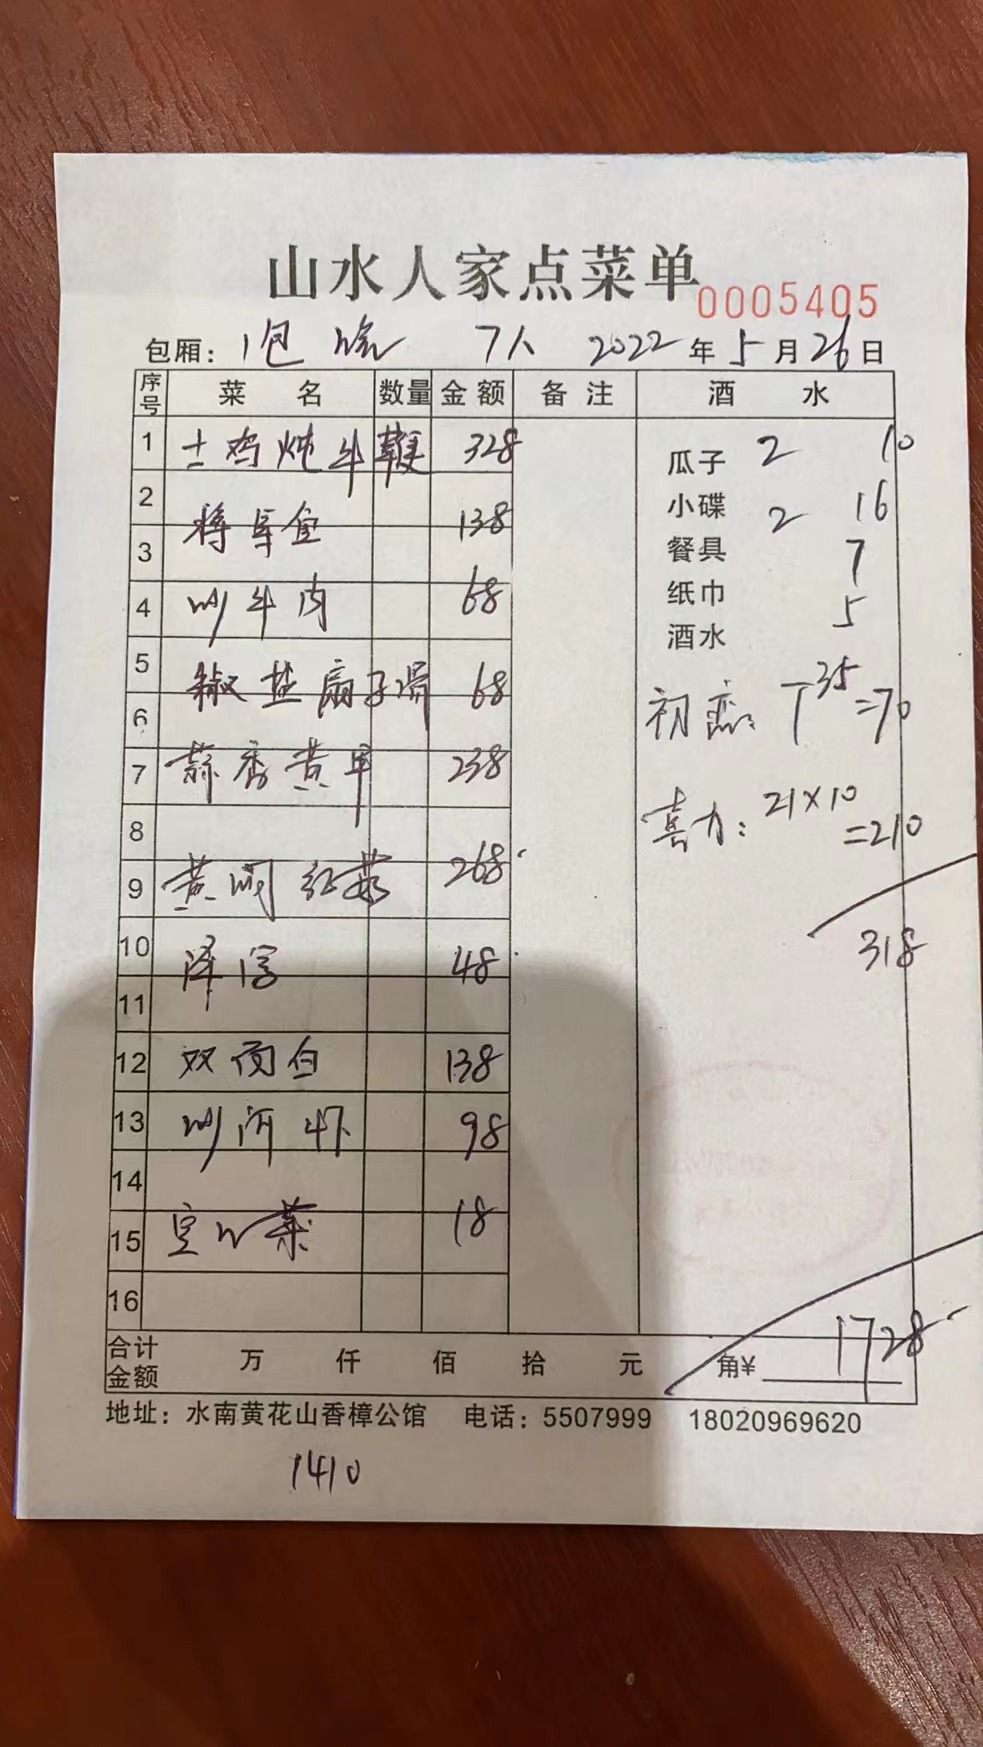 山水人家点菜单
0005405
包厢：1包 7人 2022年5月26日
序号 菜名 数量 金额 备注 酒水
1 土鸡炖牛鞭 328
2
将军鱼 138
3
4 炒牛肉 68
5
椒盐扇子骨 68
6
7 蒜香黄甲 238
8
黄焖红菇 268
9
10 泽泻 48
11
12 双面白 138
13 炒河虾 98
14
15 空心菜 18
16
瓜子 2 10
小碟 2 16
餐具 7
纸巾 5
酒水
初恋: 35=70
喜力: 21×10=210
318
合计金额 万 仟 佰 拾 元 角¥ 1728
地址：水南黄花山香樟公馆 电话：5507999 18020969620
1410